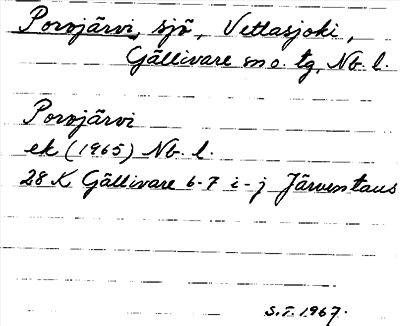 Porojärvi, sjö, Vettasjoki,
Gällivare sn o. tg, Nb. l.
Porojärvi
ek (1965) Nb. l.
28 K Gällivare 6-7 i-j Järventaus
S.T. 1967.